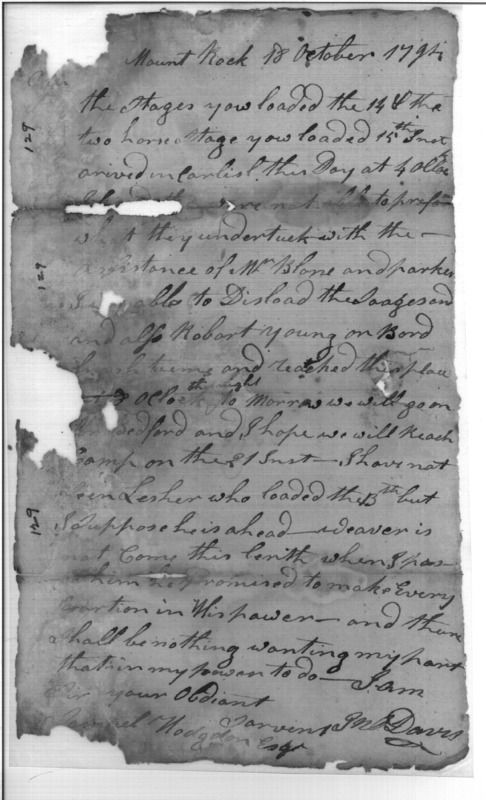 Mount Rock 18 October 1794
the Stages yow loaded the 14 & the
two horse Stage yow loaded 15th Inst
arived in Carlisl. this Day at 4 oCloc
were not able to
what they undertuck with the
assistance of Mr Blone and parker
able to Disload the Saages and
and also Robart Young on Bord
and reached this place
oClock this night to Morrow we will go on
Bedford and I hope we will Reach
Camp on the 21 Inst— I have not
Seen Lesher who loaded the 13th but
I Suppose he is ahead— weaver is
not Come this lenth when I pas
him he promised to make Every
Exartion in His power— and there
Shall be nothing wanting my part
that in my power to do— I am
Sir your Obdiant
Sarvint Jno Davis
Samuel Hodgdon Esqr
129
129
129